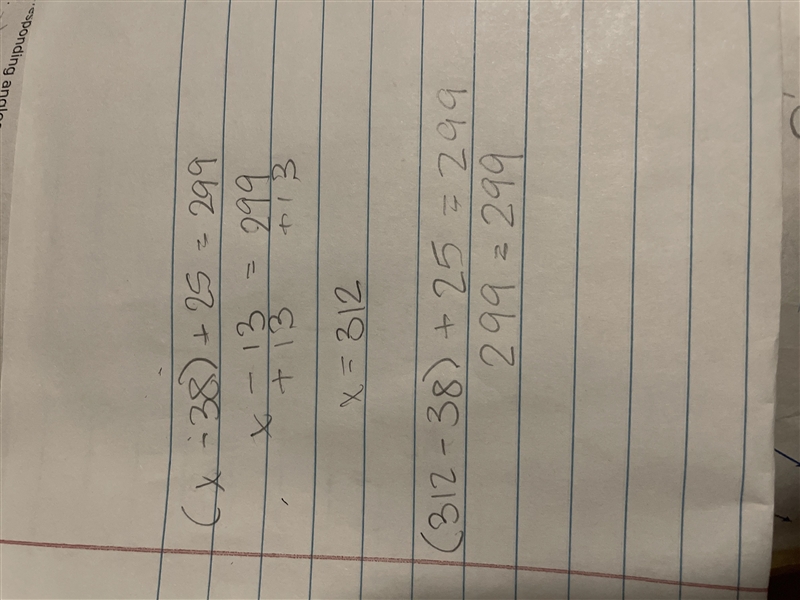 responding angles
(x - 38) + 25 = 299
x - 13 = 299
+ 13 +13
x = 312
(312 - 38) + 25 = 299
299 = 299